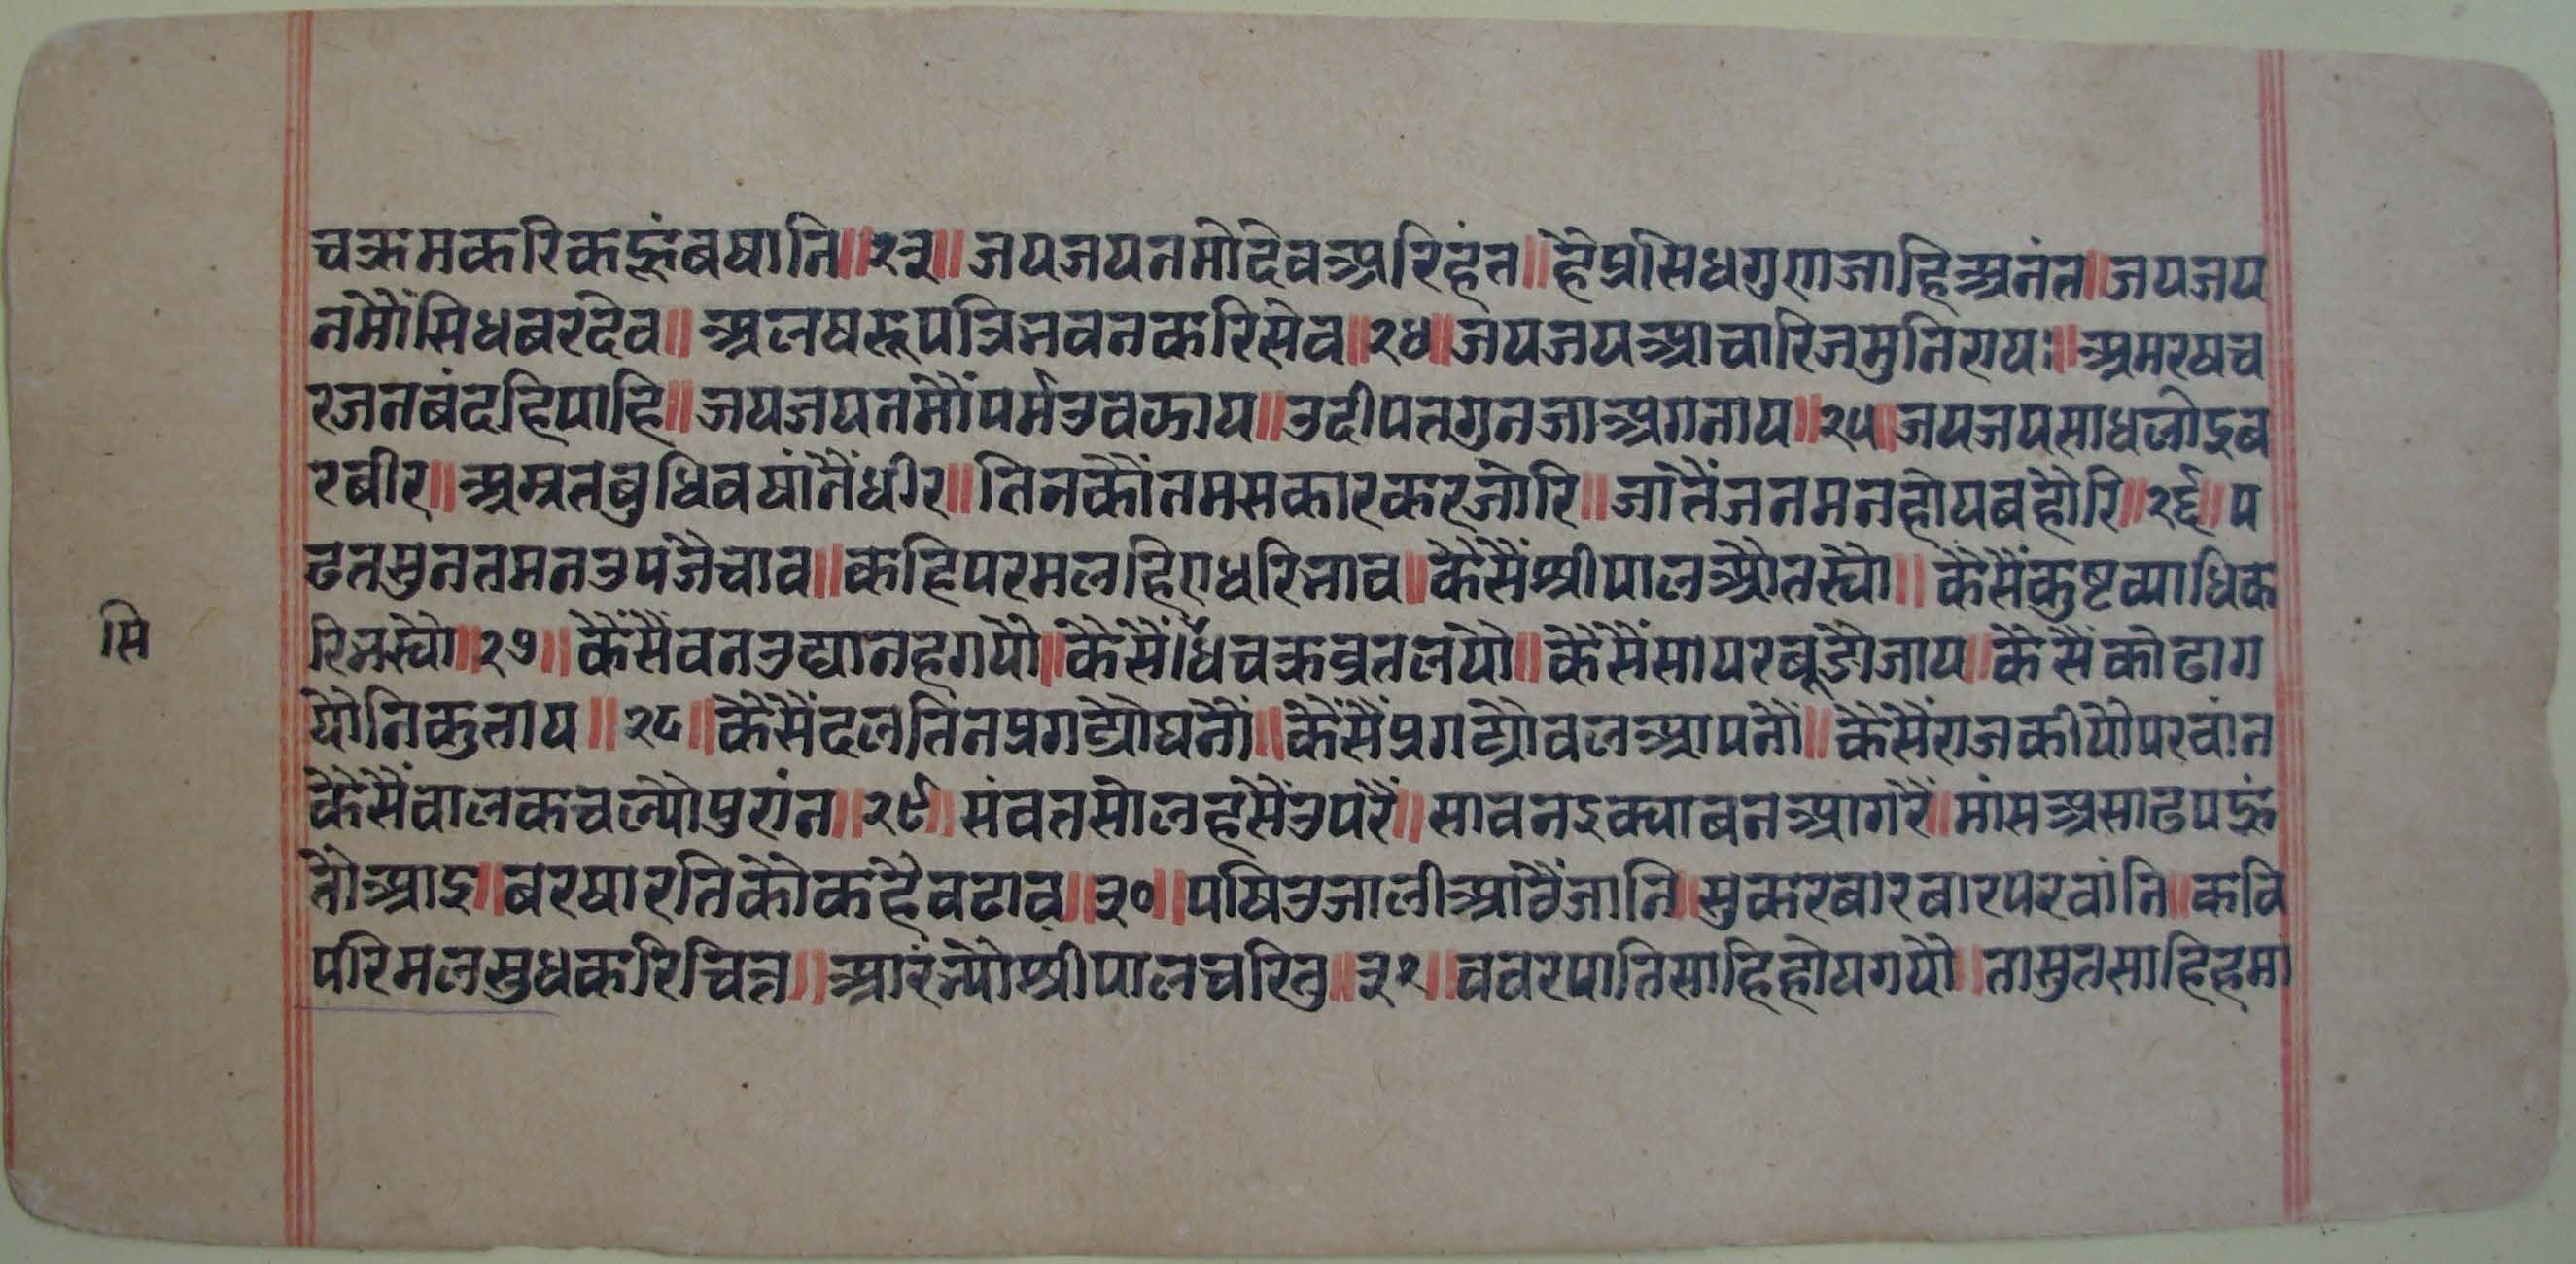 चक्रमकरिकहूंबषानि॥२३॥जयजयनमोदेवअरिहंत॥हैप्रसिधगुणजाहिअनंत॥जयजय
नमौंसिधबरदेव॥अलषरूपत्रिभवनकरिसेव॥२४॥जयजयआचारिजमुनिराय॥अमरषच
रजनबंदहिपाहि॥जयजयनमौंपर्मउवझाय॥उदीपतगुनजाअगनाय॥२५॥जयजयसाधजोइब
रबीर॥अम्रतबुधिवषांनैंधीर॥तिनकौंनमसकारकरजोरि॥जातैंजनमनहोयबहोरि॥२६॥प
ढतसुनतमनउपजैचाव॥कहिपरमलहिएधरिभाव॥कैसैंश्रीपालऔतर्यो॥कैसैंकुष्टव्याधिक
सि
रिभर्यो॥२७॥कैसैंवनउद्यानहगयौ॥कैसैंसिधचक्रव्रतलयौ॥कैसैंसायरबूडौजाय॥कैसैंकोढाग
योनिकुताय॥२८॥कैसैंदलतिनप्रगट्यौघनौं॥कैसैंप्रगट्यौवलआपनौं॥कैसैंराजकीयौपरवांन
कैसैंवालकचल्यौपुरांन॥२९॥संवतसोलहसैंउपरैं॥सावनइक्याबनआगरैं॥मांसअसाढपहूं
तौआइ॥बरषारतिकौकहैवढाव॥३०॥पषिउजालीआठैंजानि॥सुकरबारबारपरवांनि॥कवि
परिमलसुधकरिचित्त॥आरंभ्यौश्रीपालचरितु॥३१॥ववरपातिसाहिहोयगयौ॥तासुतसाहिहमा